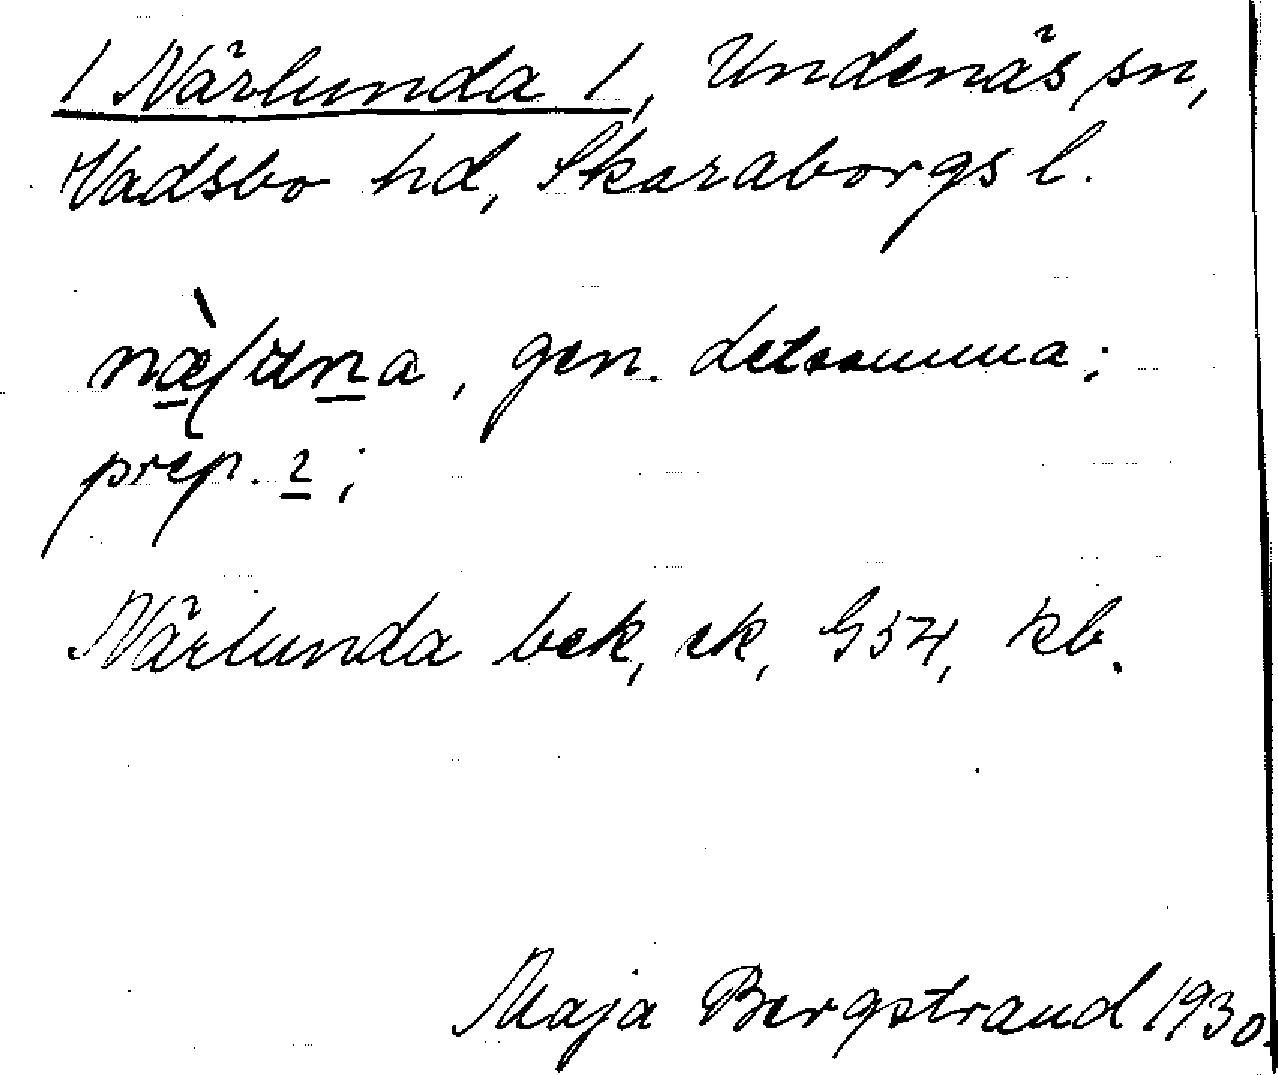 1 Närlunda 1, Undenäs sn,
Vadsbo hd, Skaraborgs l.
, gen. detsamma;
prep. 2;
Närlunda bek, ek, G54, kb.
Maja Bergstrand 1930.